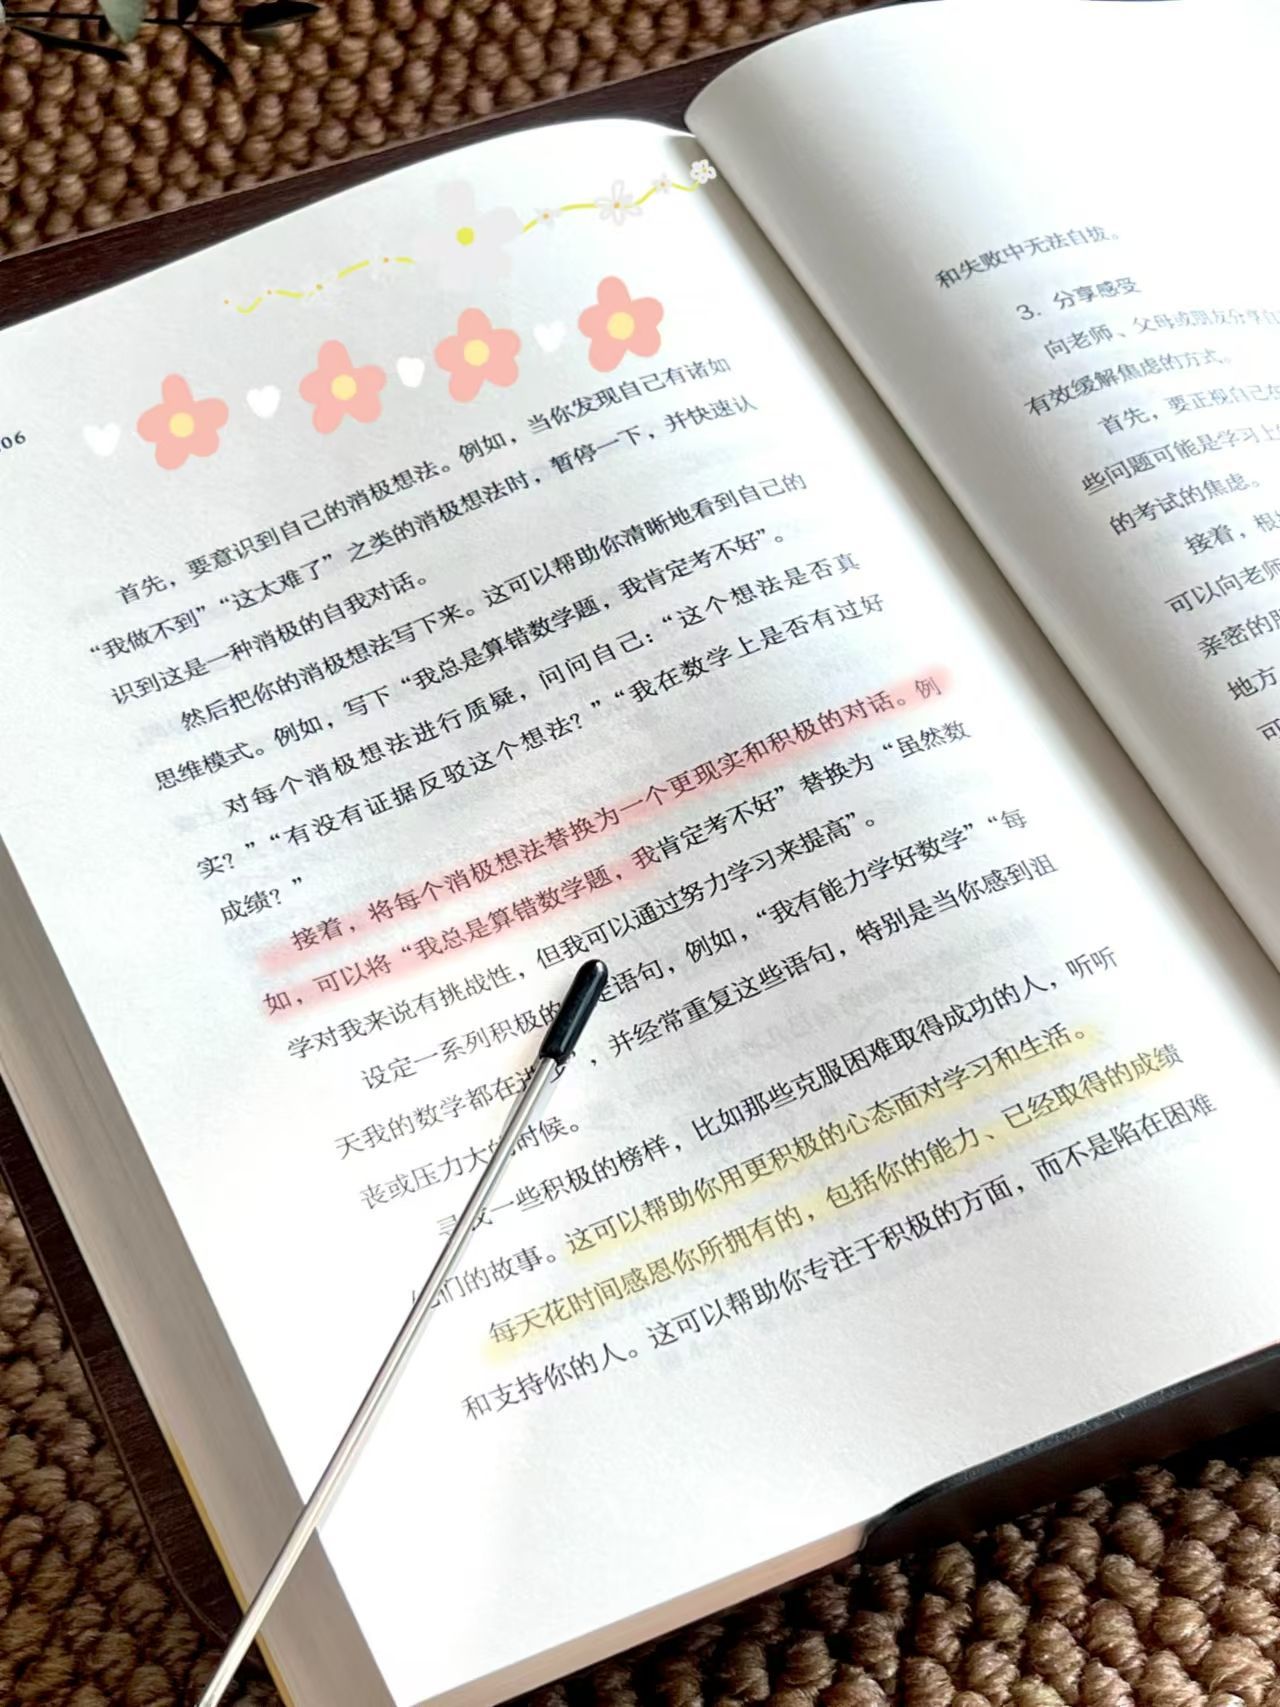 06
首先，要意识到自己的消极想法。例如，当你发现自己有诸如
“我做不到”“这太难了”之类的消极想法时，暂停一下，并快速认
识到这是一种消极的自我对话。
然后把你的消极想法写下来。这可以帮助你清晰地看到自己的
思维模式。例如，写下“我总是算错数学题，我肯定考不好”。
对每个消极想法进行质疑，问问自己：“这个想法是否真
实？”“有没有证据反驳这个想法？”“我在数学上是否有过好
成绩？”
接着，将每个消极想法替换为一个更现实和积极的对话。例
如，可以将“我总是算错数学题，我肯定考不好”替换为“虽然数
学对我来说有挑战性，但我可以通过努力学习来提高”。
设定一系列积极的 语句，例如，“我有能力学好数学”“每
天我的数学都在进步”，并经常重复这些语句，特别是当你感到沮
丧或压力大的时候。
寻找一些积极的榜样，比如那些克服困难取得成功的人，听听
他们的故事。这可以帮助你用更积极的心态面对学习和生活。
每天花时间感恩你所拥有的，包括你的能力、已经取得的成绩
和支持你的人。这可以帮助你专注于积极的方面，而不是陷在困难
和失败中无法自拔。
3. 分享感受
向老师、父母或朋友分享
有效缓解焦虑的方式。
首先，要正视自己
些问题可能是学习上
的考试的焦虑。
接着，根
可以向老师
亲密的
地方
可